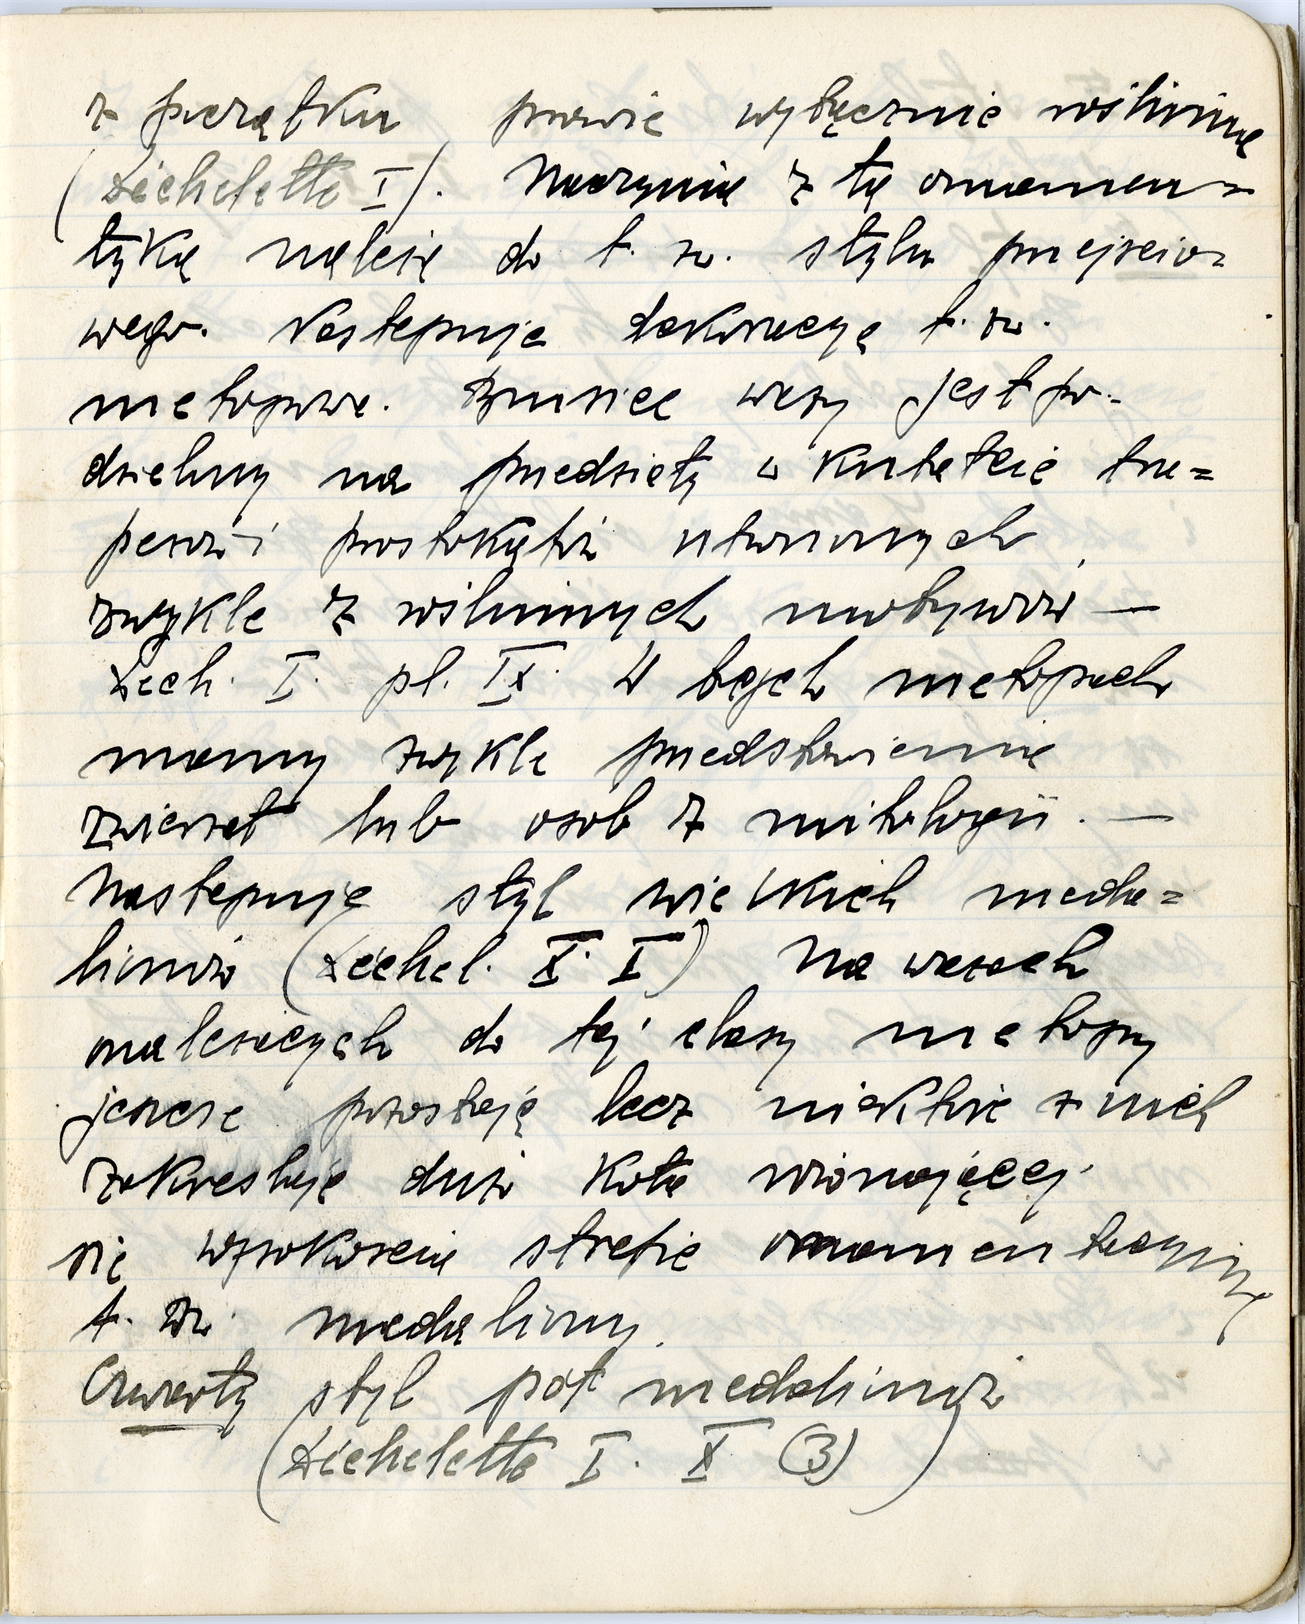 z początku prawie wyłącznie roślinną
(Dechelette I). Naczynia z tą ornamen=
tyką należą do t. zw. stylu przejścio=
wego. Następuje dekoracyą t. zw.
metopowe. Brzusiec wazy jest po=
dzielony na przedziały w kształcie tra=
pezów i prostokątów utworzonych
zwykle z roślinnych motywów —
Dech. I. pl. IX. W tych metopach
mamy zwykle przedstawienie
zwierząt lub osob z mitologii. —
Następuje styl wielkich meda=
lionów (Dechel. X. I) Na wazach
należących do tej klasy metopy
jeszcze pozostają lecz niektóre z nich
zakreślają duże koła równającej
się wysokością strefie ornamentacyjnej
t. zw. medaliony.
Czwarty styl pół medalionów
(Dechelette I. X (3) )